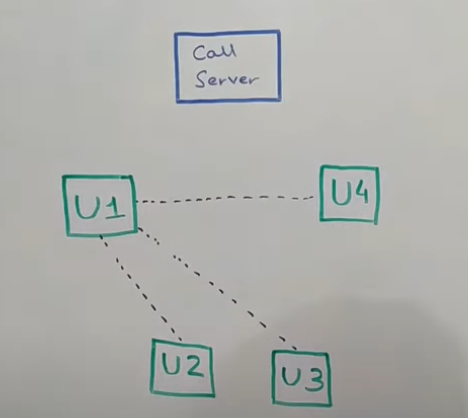 Call
Server
U1
U4
U2
U3